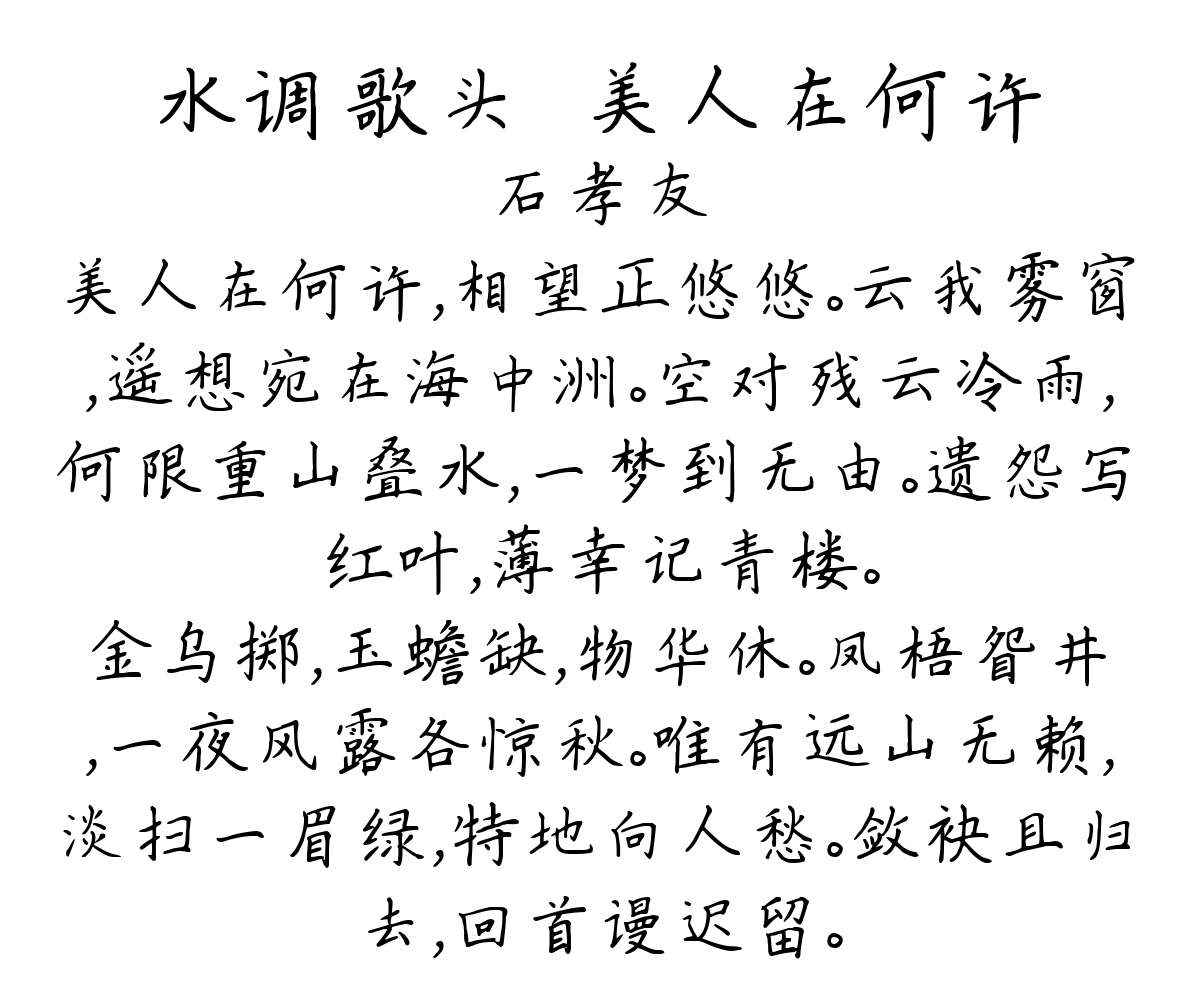 水调歌头 美人在何许
石孝友
美人在何许,相望正悠悠。云我雾窗
,遥想宛在海中洲。空对残云冷雨,
何限重山叠水,一梦到无由。遗怨写
红叶,薄幸记青楼。
金乌掷,玉蟾缺,物华休。凤梧眢井
,一夜风露各惊秋。唯有远山无赖,
淡扫一眉绿,特地向人愁。敛袂且归
去,回首谩迟留。